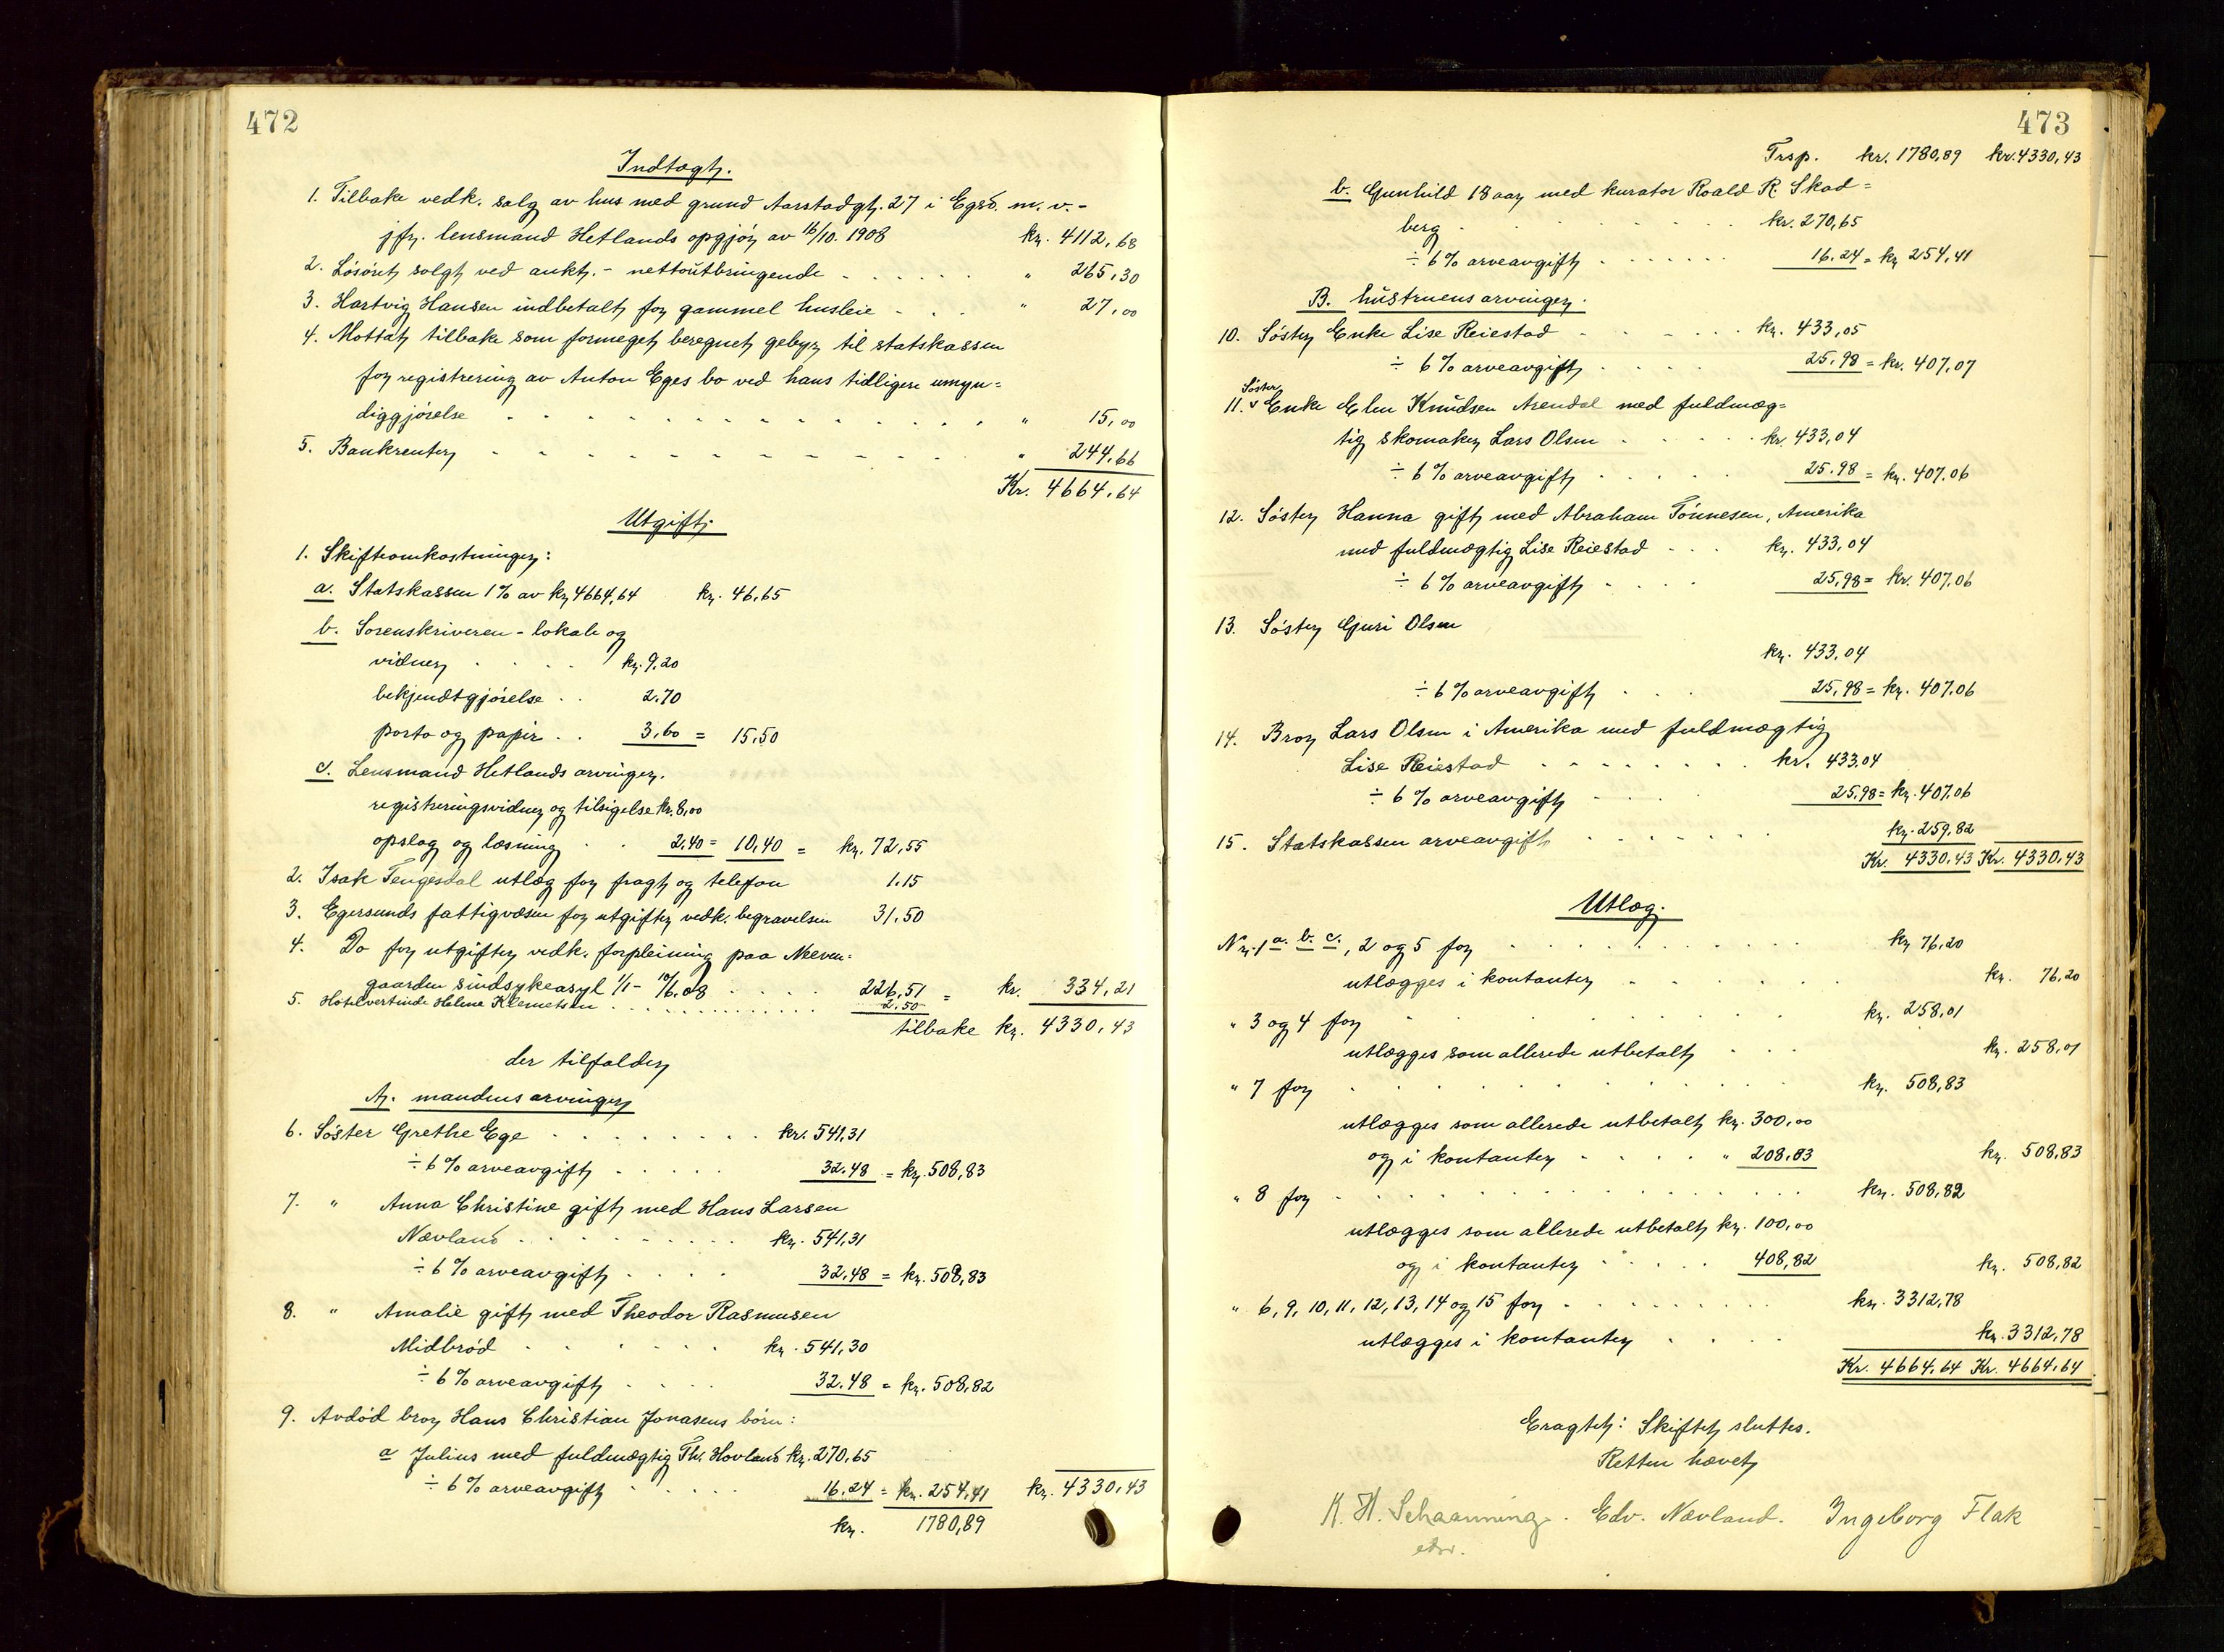 472
Indtægt.
1. Tilbake vedk. salg av hus med grund Aarstadgt. 27 i Egsd. m. v. -
jfr. lensmand Hetlands opgjør av 16/10. 1908 kr. 4112,68
2. Løsøret solgt ved aukt. - nettoutbringende . . . . . " 265,30
3. Hartvig Hansen indbetalt for gammel husleie . . . " 27,00
4. Mottat tilbake som formeget beregnet gebyr til statskassen
for registrering av Anton Eges bo ved hans tidligere umyn=
diggjørelse . . . . . . . . . . . " 15,00
5. Bankrenter . . . . . . . . . . " 244.66
Kr. 4664,64
Utgift.
1. Skifteomkostninger:
a. Statskassen 1% av kr 4664,64 kr. 46.65
b. Sorenskriveren - lokale og
vidner . . . . kr. 9.20
bekjendtgjørelse . . 2.70
porto og papir . . 3,60 = 15.50
c. Lensmand Hetlands arvinger.
registreringsvidner og tilsigelse kr. 8,00
opslag og læsning . . 2.40 = 10,40 = kr. 72,55
2. Isak Tengesdal utlæg for fragt og telefon 1.15
3. Egersunds fattigvæsen for utgifter vedk. begravelsen 31.50
4. Do for utgifter vedk. forpleining paa Neeven=
gaarden sindsykeasyl 1/1 - 10/6.08 . . . . 226,51 = kr. 334,21
5. Hotelvertinde Helene Klemetsen . . . . . . . . . . 2.50
tilbake kr. 4330,43
der tilfalder
A. mandens arvinger
6. Søster Grethe Ege . . . . . . . . kr. 541,31
÷ 6% arveavgift . . . . . 32.48 = kr. 508,83
7. " Anna Christine gift med Hans Larsen
Nævland . . . . . . . . kr. 541,31
÷ 6% arveavgift . . . . 32.48 = kr. 508,83
8. " Amalie gift med Theodor Rasmusen
Midbrød . . . . . . kr. 541,30
÷ 6% arveavgift . . . . 32.48 = kr. 508,82
9. Avdød bror Hans Christian Jonasens børn:
a Julius med fuldmægtig Th. Hovland kr. 270,65
÷ 6% arveavgift . . . . 16.24 = kr. 254,41 kr. 4330,43
kr. 1780,89
473
Trsp. kr. 1780,89 kr. 4330,43
b. Gunhild 18 aar med kurator Roald R Skad=
berg . . . . . . . kr. 270,65
÷ 6% arveavgift . . . . . . 16.24 = kr 254,41
B. hustruens arvinger.
10. Søster Enke Lise Reiestad . . . . . kr. 433,05
÷ 6% arveavgift . . . . 25,98 = kr. 407,07
Søster
11. v Enke Elen Knudsen Arendal med fuldmæg=
tig skomaker Lars Olsen . . . . . kr 433,04
÷ 6% arveavgift . . . . . 25.98 = kr. 407.06
12. Søster Hanna gift med Abraham Tønnesen, Amerika
med fuldmægtig Lise Reiestad . . . kr. 433,04
÷ 6% arveavgift . . . . 25,98 = kr. 407,06
13. Søster Guri Olsen
kr. 433,04
÷ 6% arveavgift . . . 25,98 = kr. 407.06
14. Bror Lars Olsen i Amerika med fuldmægtig
Lise Reiestad . . . . . . . . kr. 433.04
÷ 6% arveavgift . . . 25.98 = kr. 407.06
15. Statskassen arveavgift . . . . . . . kr. 259,82
Kr. 4330,43 Kr. 4330,43
Utlæg.
Nr. 1 a. b. c., 2 og 5 for . . . . . . . . kr 76,20
utlægges i kontanter . . . . . . . kr. 76,20
" 3 og 4 for . . . . . . . . . . kr. 258,01
utlægges som allerede utbetalt . . . kr. 258,01
" 7 for . . . . . . . . . . . kr. 508,83
utlægges som allerede utbetalt kr. 300,00
og i kontanter . . . . . " 208,83 kr. 508,83
" 8 for . . . . . . . . . . . . kr. 508,82
utlægges som allerede utbetalt kr. 100,00
og i kontanter . . . . . 408,82 kr. 508,82
" 6, 9, 10, 11, 12, 13, 14 og 15 for . . . . . . . . kr. 3312,78
utlægges i kontanter . . . . kr. 3312,78
Kr. 4664,64 Kr. 4664,64
Eragtet: Skiftet sluttes.
Retten hævet
K. H. Schaanning. Edv. Nævland. Ingeborg Flak